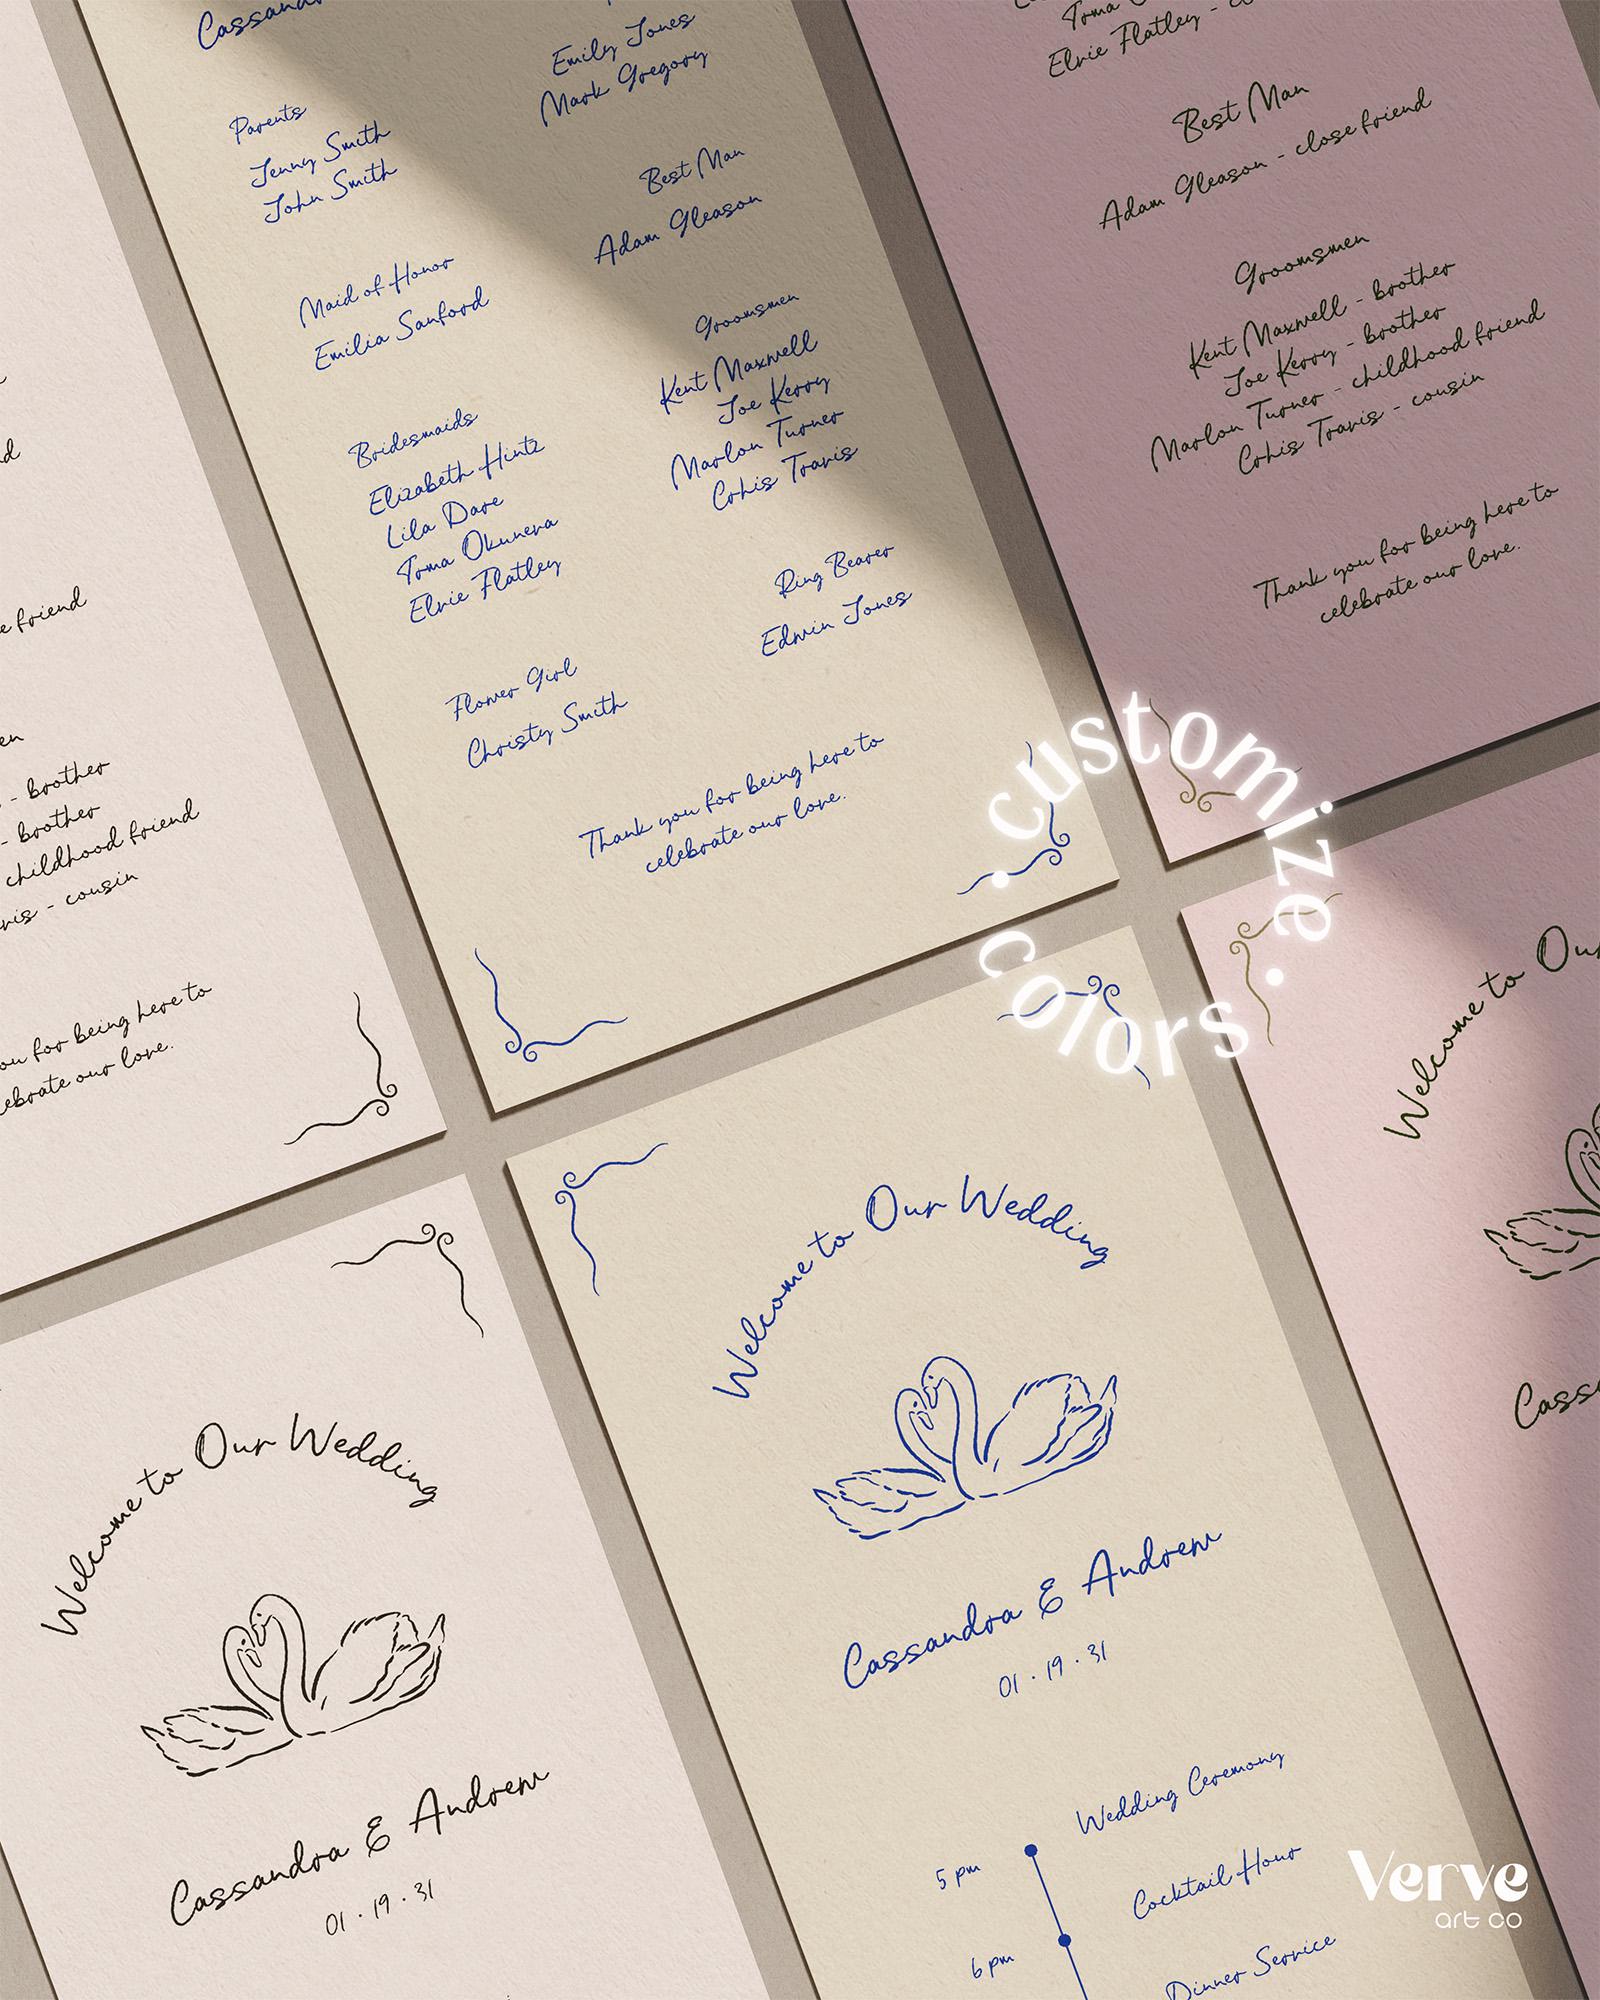 Parents
Jenny Smith
John Smith
Maid of Honor
Emilia Sanford
Bridesmaids
Elizabeth Hintz
Lila Dare
Toma Okuneva
Elvie Flatley
Flower Girl
Christy Smith
Emily Jones
Mark Gregory
Best Man
Adam Gleason
Groomsmen
Kent Maxwell
Joe Kerry
Marlon Turner
Crhis Travis
Ring Bearer
Edwin Jones
Thank you for being here to
celebrate our love.
Elvie Flatley -
Best Man
Adam Gleason - close friend
Groomsmen
Kent Maxwell - brother
Joe Kerry - brother
Marlon Turner - childhood friend
Crhis Travis - cousin
Thank you for being here to
celebrate our love.
friend
- brother
- brother
childhood friend
- cousin
for being here to
our love.
· customize ·
colors
Welcome to Our Wedding
Cassandra & Andrew
01 · 19 · 31
Welcome to Our Wedding
Cassandra & Andrew
01 · 19 · 31
5 pm
Wedding Ceremony
6 pm
Cocktail Hour
Dinner Service
Welcome to
Verve
art co